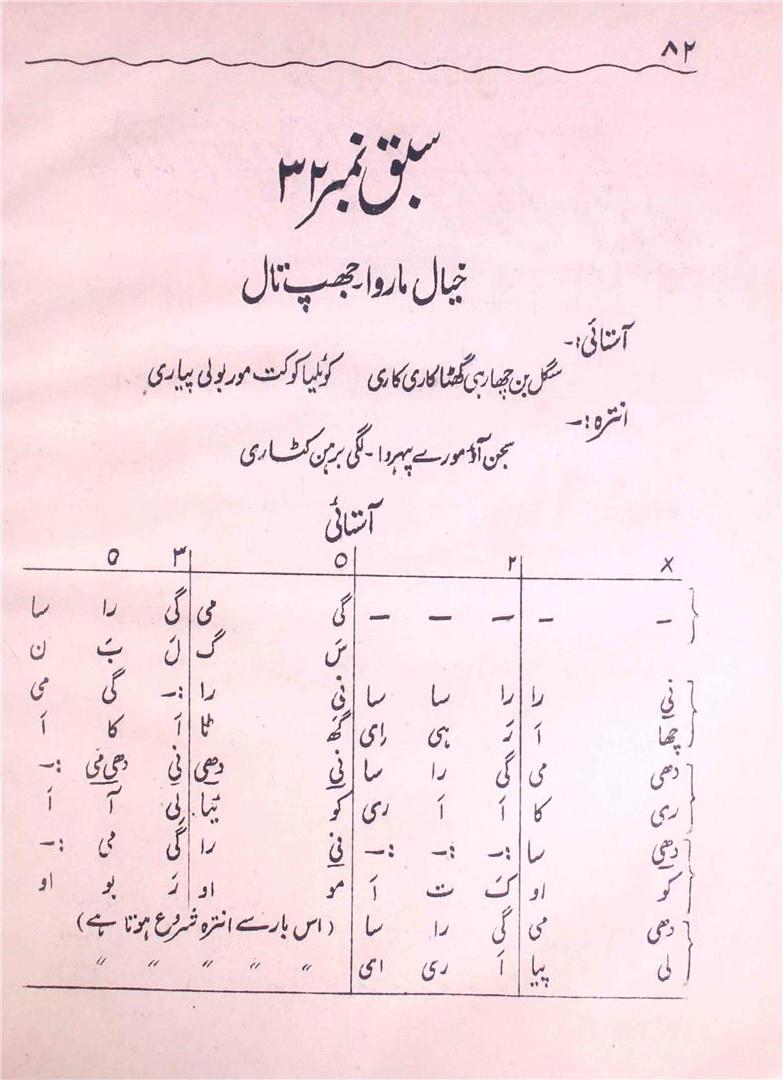 ۸۲
سبق نمبر ۳۲
خیال ماروا۔جھپ تال
آستائی:۔
سگل بن چھا رہی گھٹا کاری کاری کوئلیا کوکت مور بولی پیاری
انترہ:۔
سجن آؤ مورے پہروا۔لگی برہن کٹاری
آستائی
x ۲ ० ۳ ०
– – – – – گی می گی را سا
سَ گ لَ بَ ن
نی را را سا سا نی را :– گی می
چھا اَ رَ ہی رای گھ ٹا اَ کا اَ
دھی می گی را سا نی دھی نی دھی می :–
ری کا اَ اَ ری کو ئیا لِی آ اَ
دھی سا :– :– :– نی را گی می :–
کو او کَ ت اَ مو او رَ بو او
دھی می گی را سا (اس بار سے انترہ شروع ہوتا ہے)
لی پیا اَ ری ای " " " " "